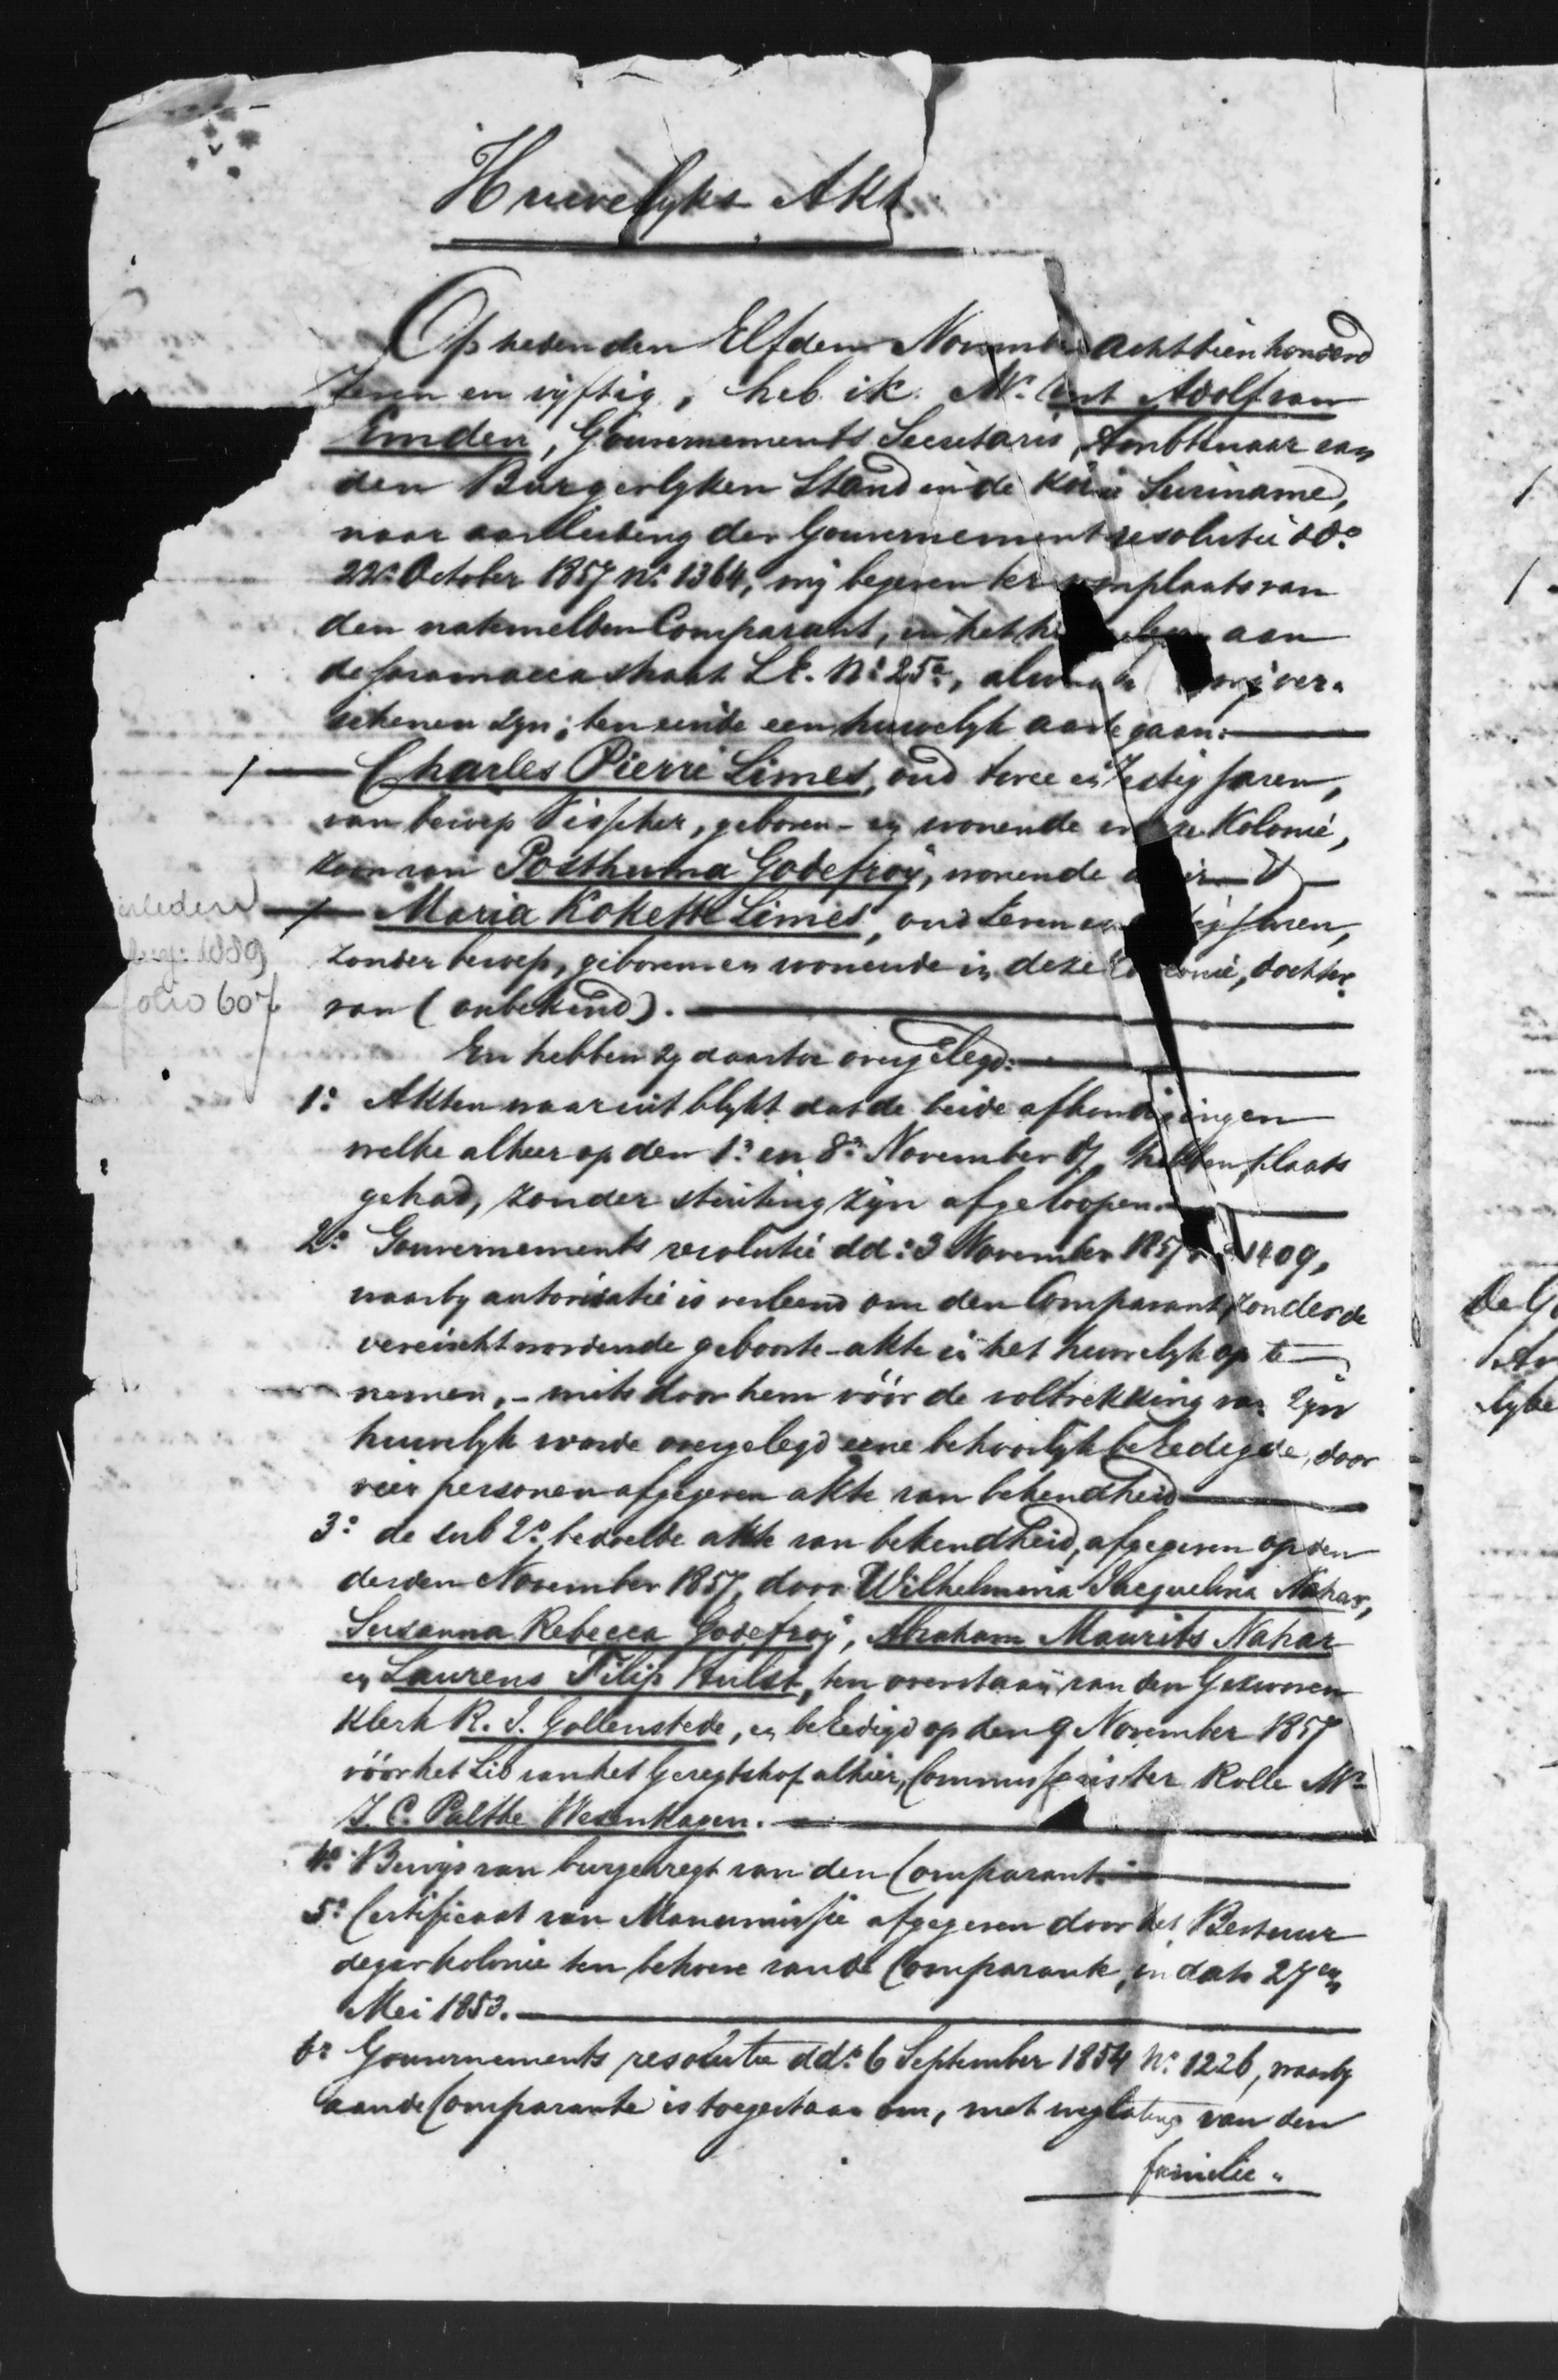 Huwelyks Akt
Op heden den Elfden Novembe achttienhonderd
zeven en vyftig, heb ik Mr. Adolf van
Emden, Gouvernements Secretaris, Ambtenaar van
den Burgerlyken Stand in de Ko ie Suriname,
naar aanleiding der Gouvernement resolutie dd.o
22n October 1857 No. 1364, mij begeven ter woonplaats van
den natemelden Comparant, in het h aan
de Saramacca straat Lt. E. No. 25a, alw mij ver„
schenen zyn; ten einde een huwelyk aan te gaan:
Charles Pierre Limes, oud twee en Zestig jaren,
van beroep Visscher, geboren en wonende in ze Kolonie,
zoon van Posthuma Godefroij, wonende a ier
Maria Kokette Limes, oud zeven en ig jaren,
zonder beroep, geboren en wonende in deze Kolonie, dochter
van (onbekend).
overleden
reg: 1889
folio 607
En hebben zy daartoe overgelegd:
1o Akten waaruit blykt dat de beide afkondigingen
welke alhier op den 1n en 8n November dj hebben plaats
gehad, zonder stuiting zijn afgeloopen.
2o Gouvernements resolutie dd.o 3 November 1857 1409,
waarby autorisatie is verleend om den Comparant, zonder de
vereischt wordende geboorte-akte in het huwelyk op te
nemen, – mits door hem vóór de voltrekking van zijn
huwelyk worde overgelegd eene behoorlijk beëedigde, door
vier personen afgegeven akte van bekendheid
3o de sub 2o bedoelde akte van bekendheid, afgegeven op den
derden November 1857, door Wilhelmina Jacquelina Nahar,
Susanna Rebecca Godefroij, Abraham Maurits Nahar
en Laurens Filip Hulst, ten overstaan van den Gezworen
Klerk R. I. Gollenstede, en beëedigd op den 9 November 1857
vóór het Lid van het Geregtshof alhier, Commissaris ter Rolle Mr.
J. C. Palthe Wesenhagen.
4o Bewijs van burgerregt van den Comparant.
5o Certificaat van Manumissie afgegeven door het Bestuur
dezer kolonie ten behoeve van de Comparante, in dato 27en
Mei 1853.
6o Gouvernements resolutie dd.o 6 September 1854 No. 1226, waarby
aan de Comparante is toegestaan om, met weglating van den
familie„